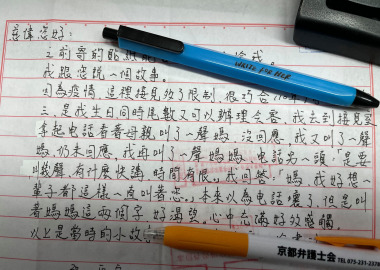 意偉您好:
之前寄的貼紙
我跟您說一個故事。
因為疫情,這裡接見改了限制,很巧合
三,是我生日同時也數可以辦理會客,我去到接見室
拿起電話看著母親叫了一聲媽,沒回應,我又叫了一聲
媽仍未回應,我再叫了一聲媽媽,電話另一頭「是要
叫幾聲,有什麼快講,時間有限。」我回答:「媽,我好想
輩子都這樣一直叫著您。」本來以為電話壞了,但是叫
著媽媽這兩個字好渴望,心中充滿好的感觸,
以上是當時的小故
Write for HER
京都弁護士会
TEL 075-231-2378